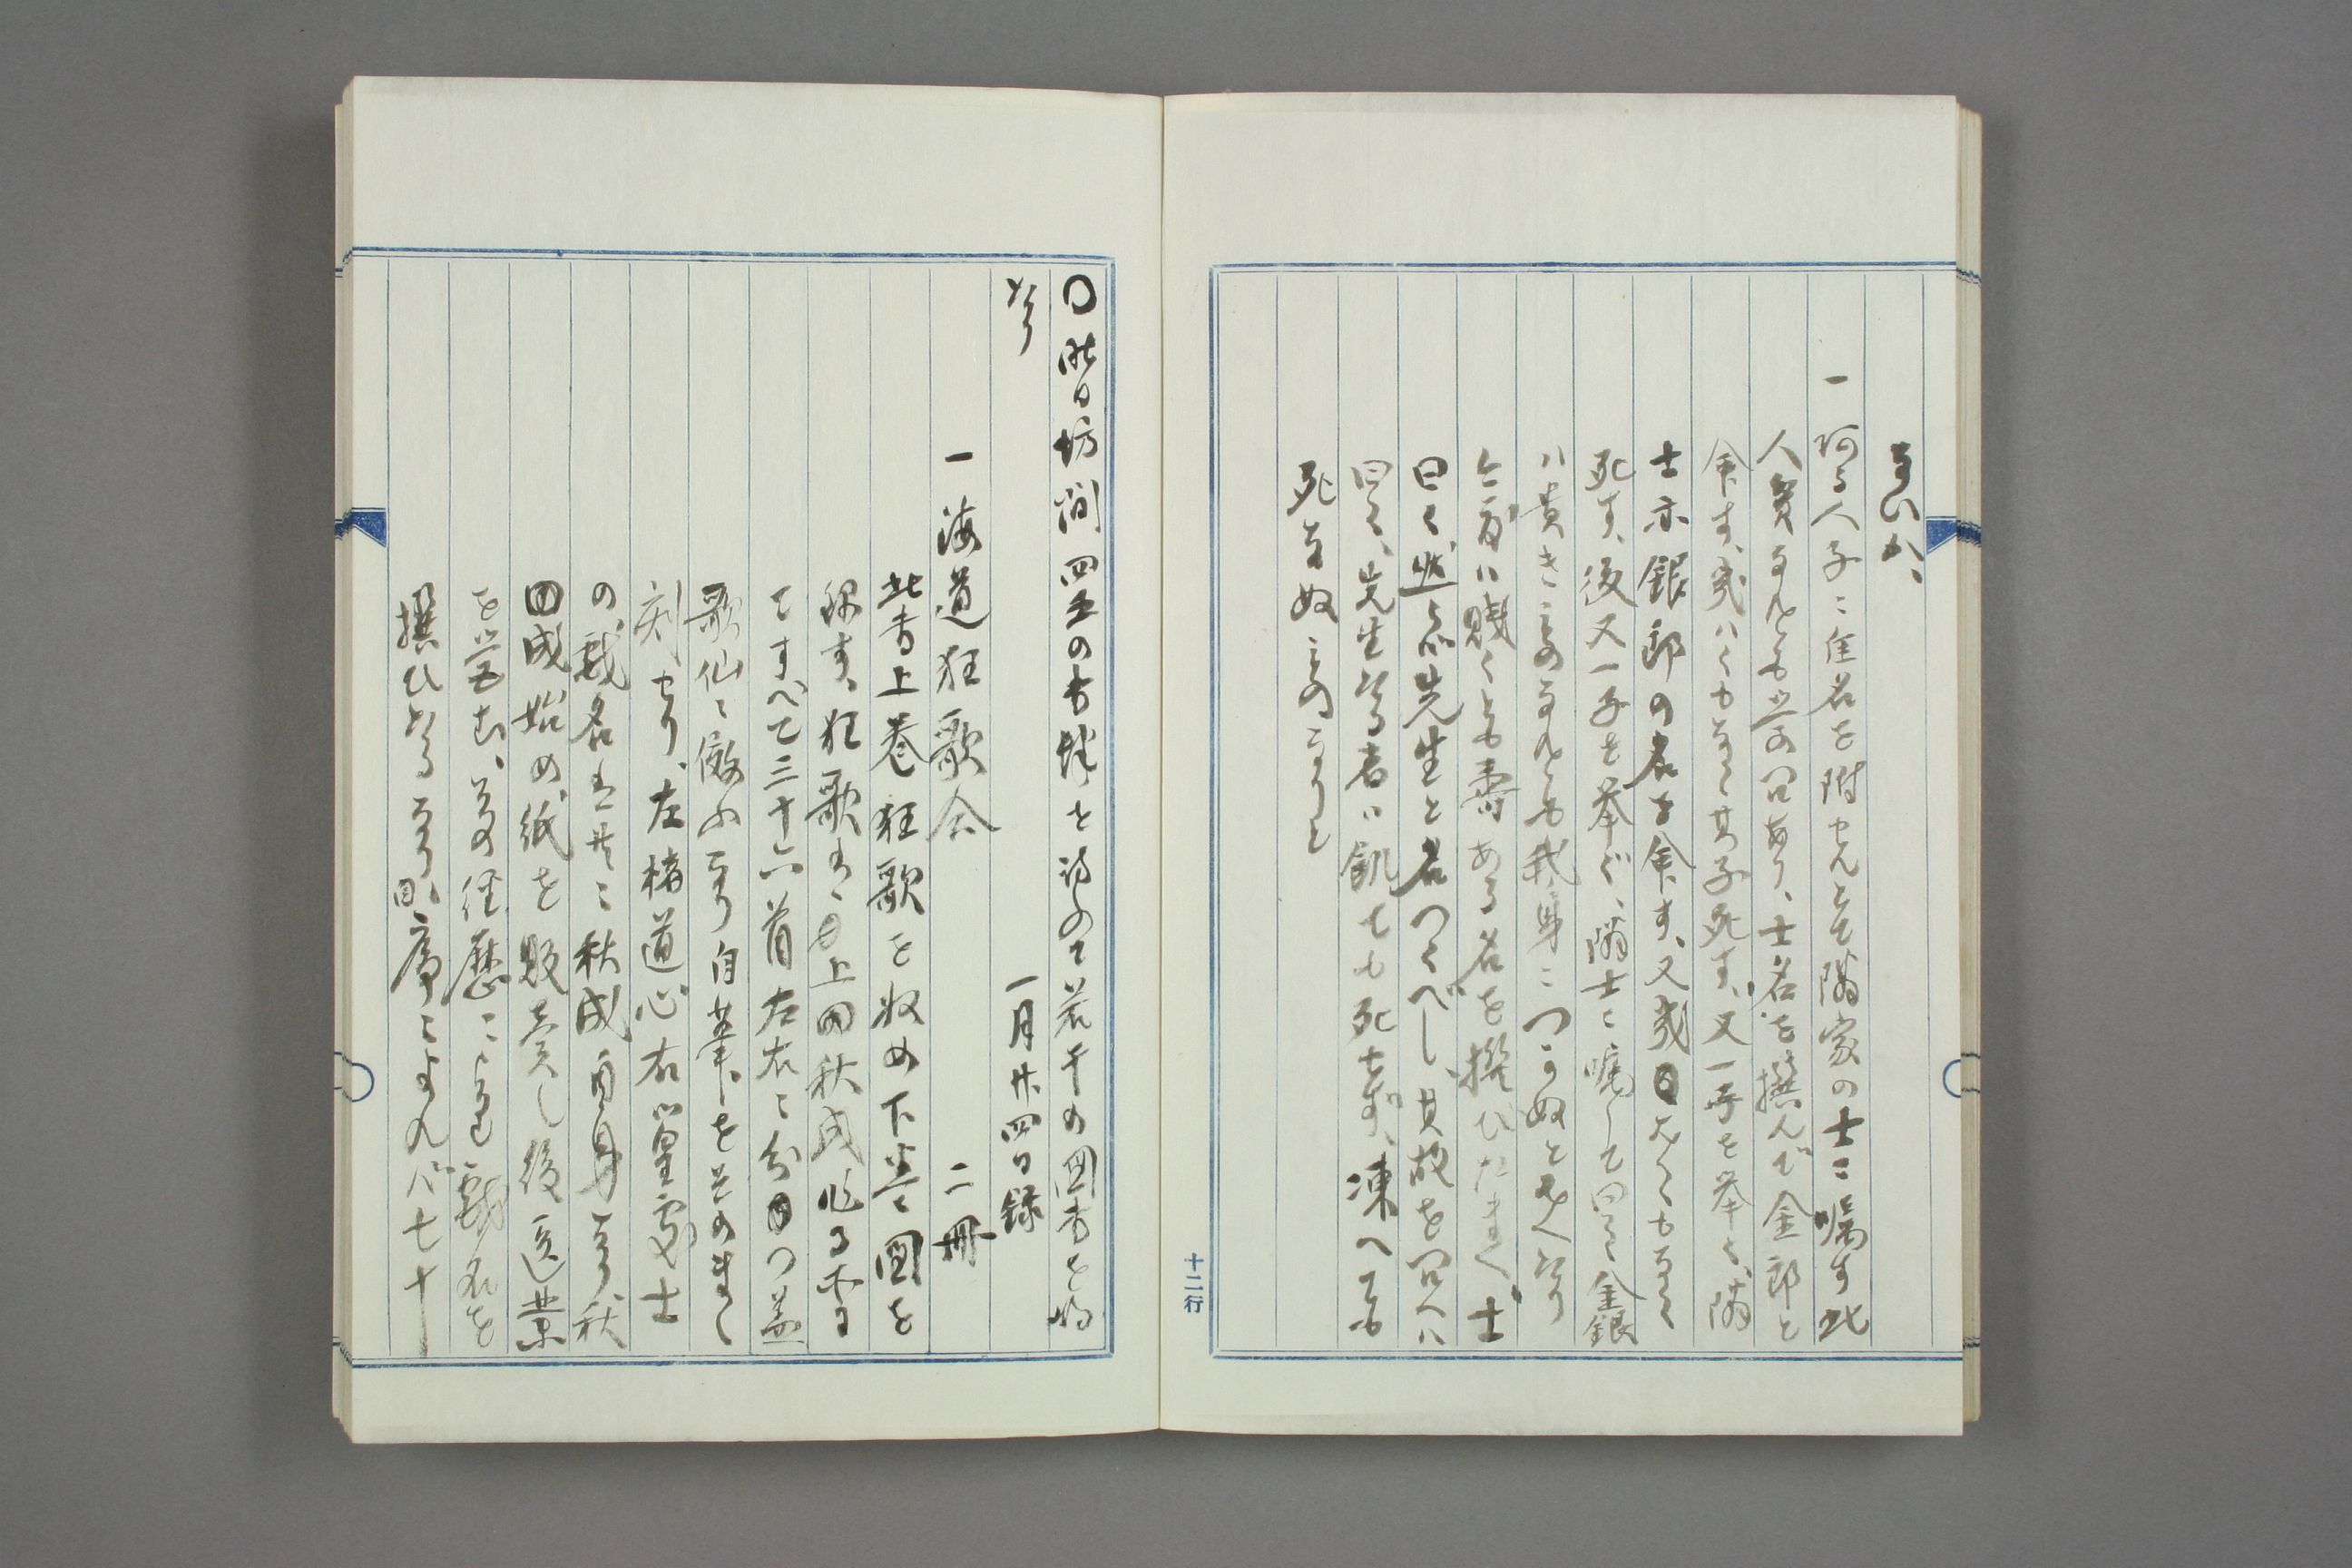 ないか、
一 或る人子に佳名を附せんとて隣家の士に嘱す此
人貧なれども学問あり、士名を撰んで金郎と
命ず、幾ハくもなく其子死す、又一子を挙ぐ、隣
士亦銀郎の名を命ず、又幾くもなく
死す、後又一子を挙ぐ、隣士に嘱して曰く、金銀
ハ貴きものなれども我身につかぬと見へたり
今度ハ賤くとも寿ある名を撰びたまへ、士
曰く、然らバ先生と名つくべし、其故を問へハ
曰く、先生なる者ハ飢ても死せず、凍へても
死なぬものなりと
十二行
〇昨日坊間四五の書肆を訪ひて若干の図書を獲
たり
一月廿四日録
一 海道狂歌合 二冊
此書上巻狂歌を収め下巻に図を
録す、狂歌は上田秋成作る所に
てすべて三十六首左右に分つ蓋
歌仙に倣ふなり自筆をそのまゝ
刻せり、左楮道心右筆処士
の戯名は共に秋成自身なり、秋
成始め紙を販売し後医業
を営む、其の経歴により戯名を
撰ひたるなり、序によれバ七十